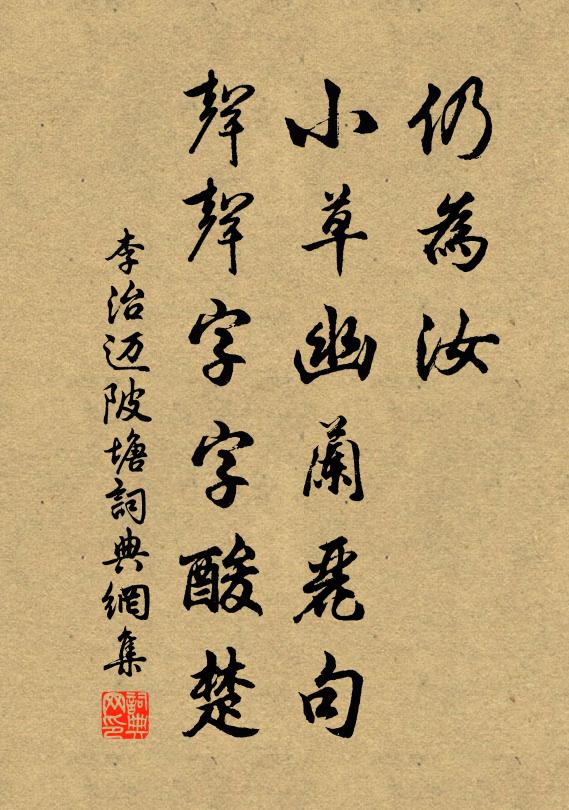 仍為汝
小草幽蘭麗句
聲聲字字酸楚
李治迈陂塘詞典網集
詞典
网印